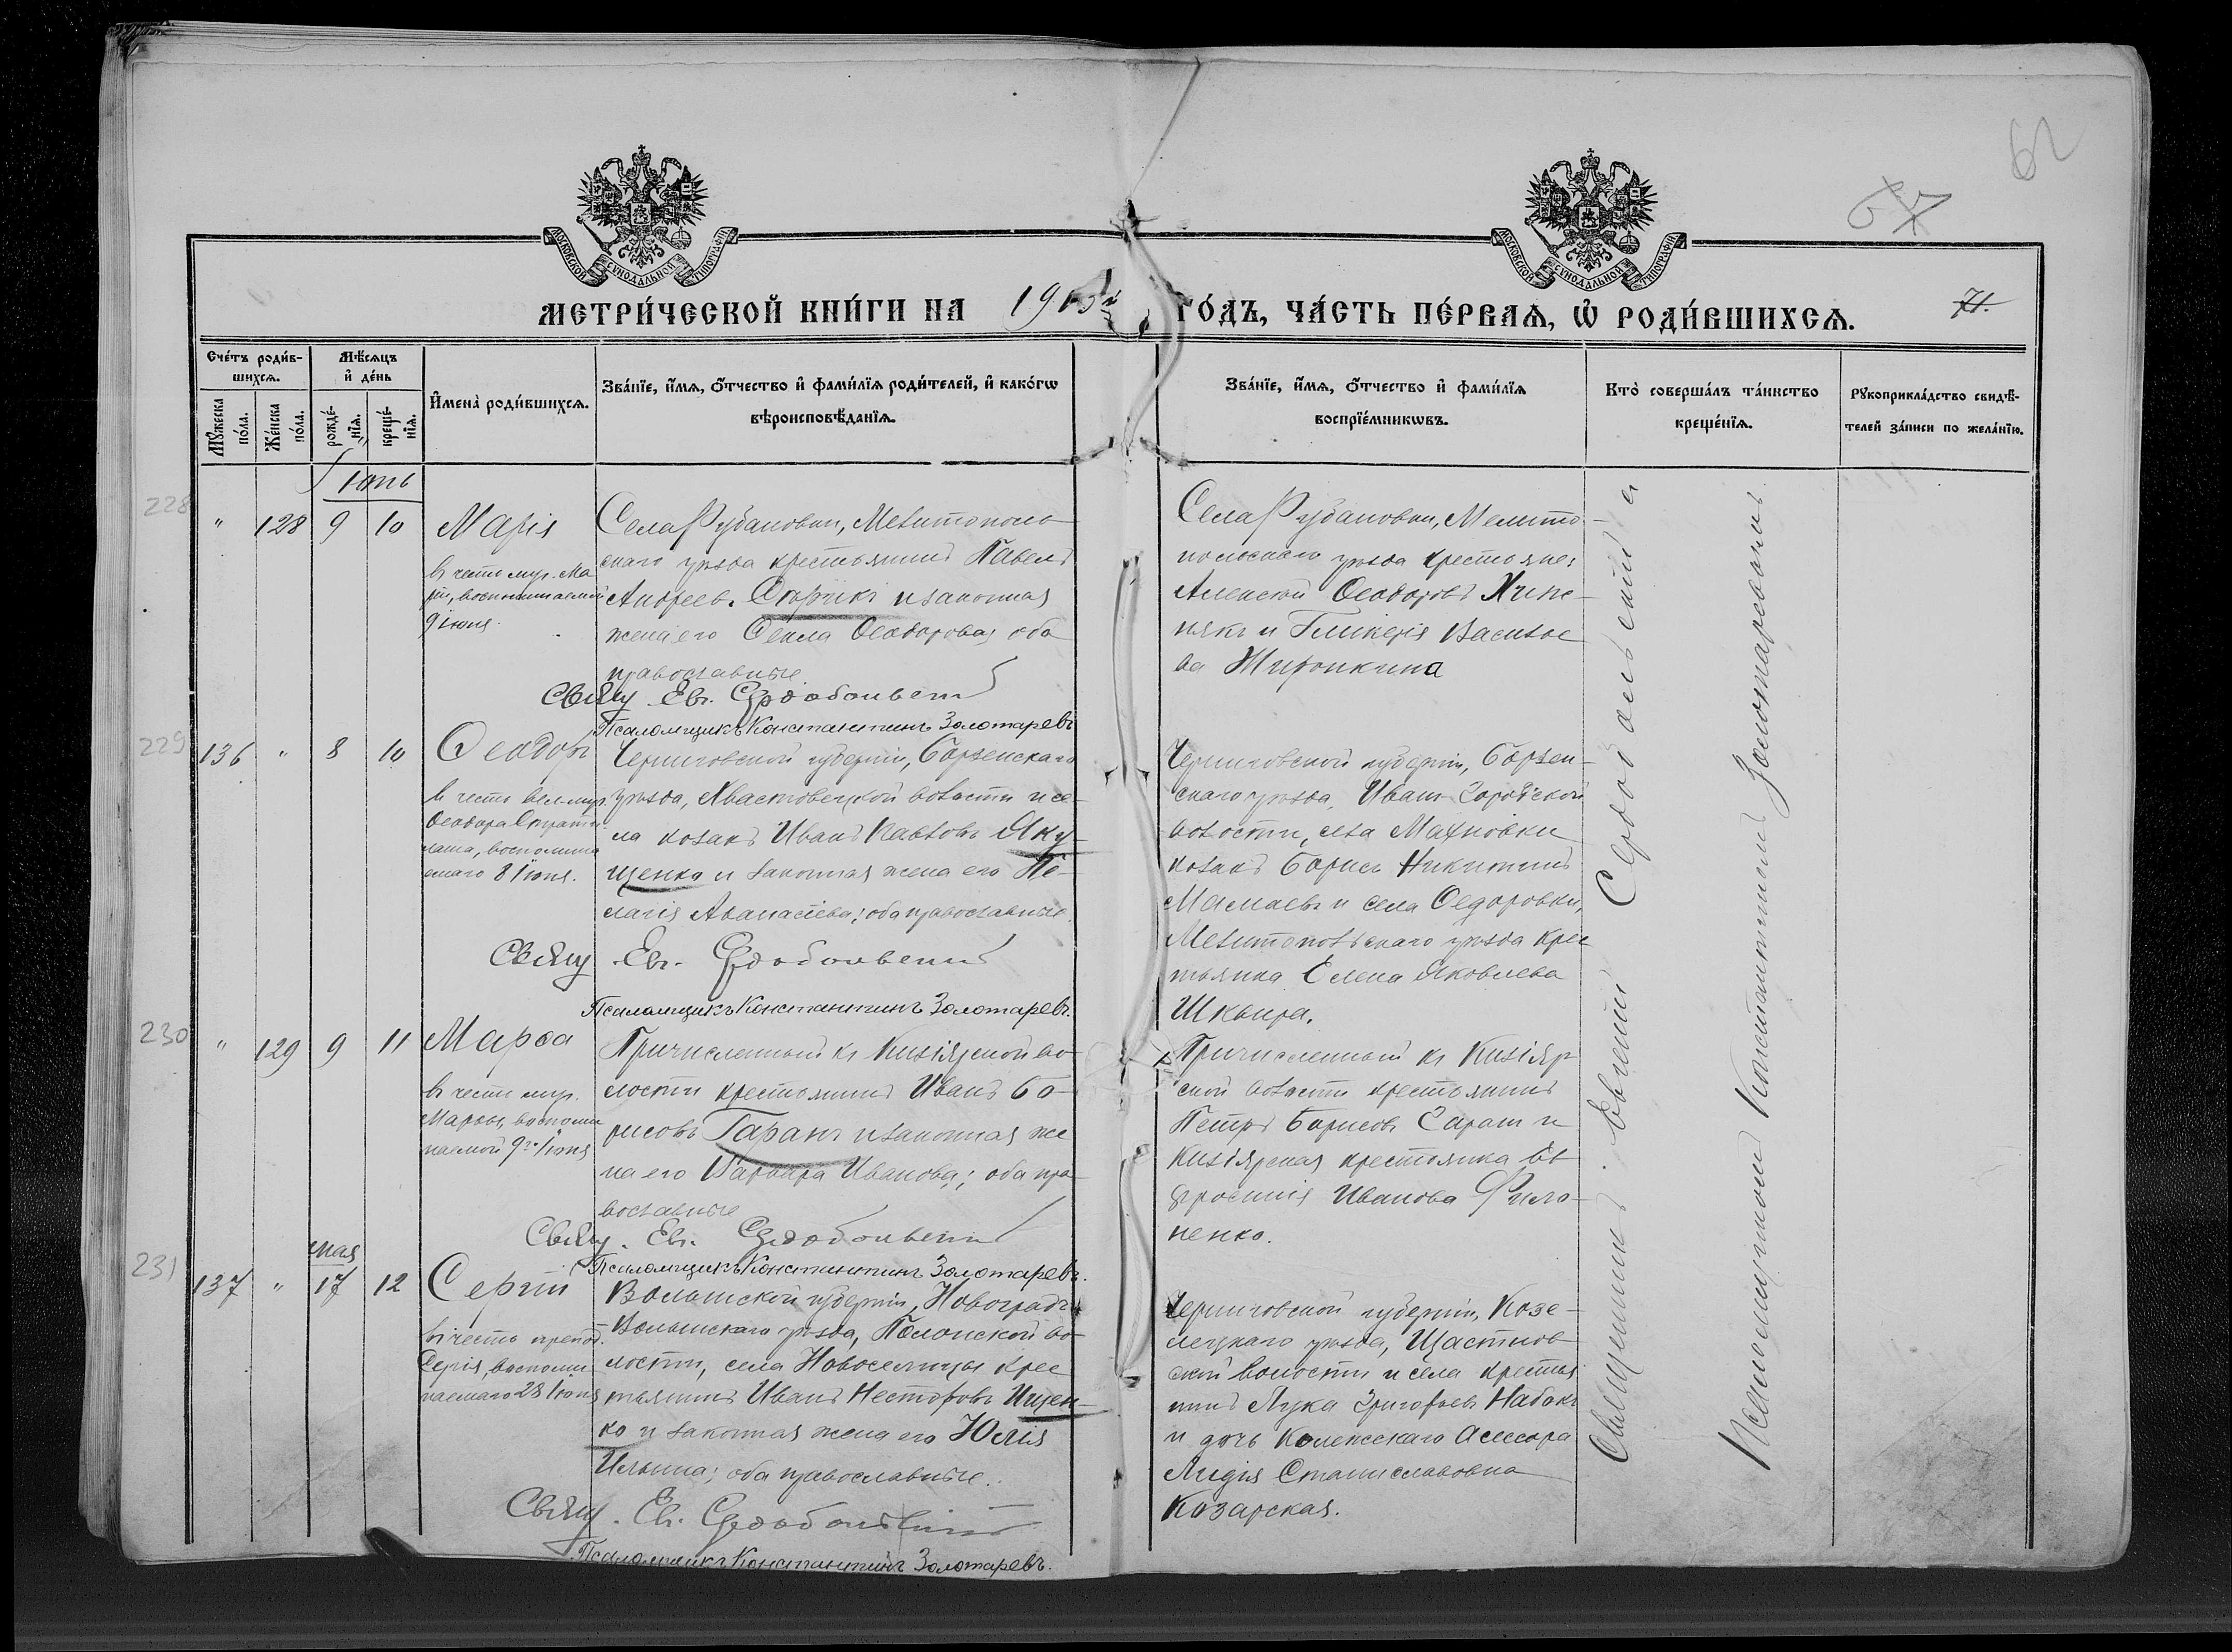 62
67
МОСКОВСКОЙ СѴНОДАЛЬНОЙ ТИПОГРАФІИ
МОСКОВСКОЙ СѴНОДАЛЬНОЙ ТИПОГРАФІИ
МЕТРИ́ЧЕСКОЙ КНИ́ГИ НА
ГО́ДЪ, ЧА́СТЬ ПЕ́РВАѦ, Ѡ҆ РОДИ́ВШИХСѦ.
71.
Сче́тъ роди́в-
шихсѧ.
Мꙋ́жеска по́ла.
Же́нска по́ла.
Мѣ́сѧцъ
и҆ де́нь
рожде́-нїѧ.
креще́-нїѧ.
И҆мена̀ роди́вшихсѧ.
Зва́нїе, и҆́мѧ, ѻ҆́тчество и҆ фами́лїѧ роди́телей, и҆ како́гѡ
вѣроисповѣ́данїѧ.
Зва́нїе, и҆́мѧ, ѻ҆́тчество и҆ фами́лїѧ
воспрїе́мникѡвъ.
Кто̀ соверша́лъ та́инство
креще́нїѧ.
Рꙋкоприкла́дство свидѣ́-
телей за́писи по жела́нїю.
Іюнь
228
" 128 9 10 Марія
въ честь муч. Ма
ріи, воспоминаемой
9 іюня.
Села Рубановки, Мелитополь
скаго уѣзда крестьянинъ Павелъ
Андреевъ и законная
жена его Ѳекла Ѳеодорова; оба
православные.
Свящ. Ев. Сердобольскій
Псаломщикъ Константинъ Золотаревъ
Села Рубановки, Мелито-
польскаго уѣзда крестьяне:
Алексѣй Ѳеодоровъ
и Гликерія Василье
ва Жиронкина
229
136 " 8 10 Ѳеодоръ
въ честь вел. муч.
Ѳеодора Страти
лата, воспомина
емаго 8 Іюня.
Черниговской губерніи, Борзенскаго
уѣзда, Ивастовецкой волости и се-
ла козакъ Иванъ Павловъ Яку-
щенко и законная жена его Пе-
лагія Аѳанасіева; оба православные.
Свящ. Ев. Сердобольскій
Псаломщикъ Константинъ Золотаревъ.
Черниговской губерніи, Борзен-
скаго уѣзда, Иванъ-Городской
волости, села Махновки
козакъ Борисъ Никитинъ
Мамаевъ и села Ѳедоровки,
Мелитопольскаго уѣзда крес
тьянка Елена Яковлева
Шквыра.
230
" 129 9 11 Марѳа
въ честь муч.
Марѳы, воспоми
наемой 9го Іюня
Причисленный къ Кизіярской во-
лости крестьянинъ Иванъ Бо-
рисовъ Гаранъ и законная же
на его Варвара Иванова; оба пра-
вославные
Свящ. Ев. Сердобольскій
Псаломщикъ Константинъ Золотаревъ.
Причисленный къ Кизіяр
ской волости крестьянинъ
Петръ Борисовъ Гаранъ и
Кизіярская крестьянка Ев
фросинія Иванова Фило-
ненко.
231
мая
137 " 17 12 Сергій
въ честь препод.
Сергія, воспоми
наемаго 28 Іюня
Волынской губерніи, Новоградъ
Волынскаго уѣзда, Полонской во-
лости, села Новоселицы крес
тьянинъ Иванъ Несторовъ Ищен-
ко и законная жена его Юлія
Ильина; оба православные.
Свящ. Ев. Сердобольскій
Псаломщикъ Константинъ Золотаревъ.
Черниговской губерніи, Козе-
лецкаго уѣзда, Щастнов
ской волости и села крестья
нинъ Лука Григорьевъ Набокъ
и дочь Колежскаго Асессора
Лидія Станиславовна
Козарская.
Священникъ Евгеній Сердобольскій съ
Псаломщикомъ Константиномъ Золотаревымъ.